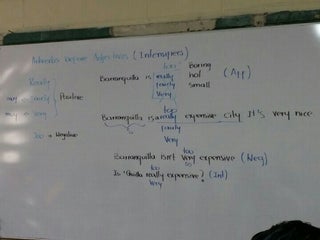 Adverbs Before Adjectives (Intensifiers)
too Boring
Barranquilla is really hot (App)
pretty small
Very
Really
Pretty Positive
Very
Too = Negative
too
Barranquilla is a really expensive city It's very nice
pretty
Very
Barranquilla isn't very expensive (Neg)
too
so
Is 'Quilla really expensive? (Int)
Very